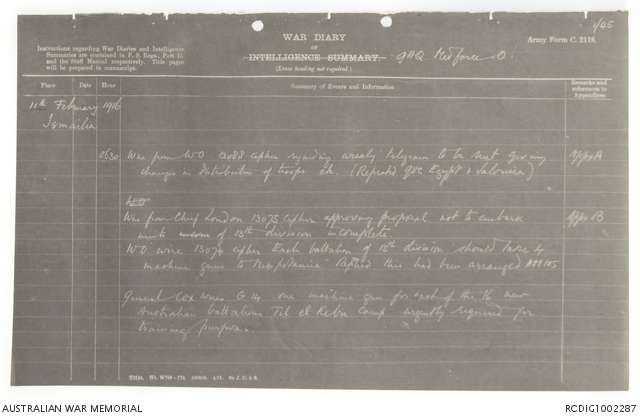 1/65
WAR DIARY
or
INTELLIGENCE SUMMARY.
GHQ Medforce O
(Erase heading not required.)
Army Form C. 2118.
Instructions regarding War Diaries and Intelligence
Summaries are contained in F. S. Regs., Part II.
and the Staff Manual respectively. Title pages
will be prepared in manuscript.
Place Date Hour Summary of Events and Information Remarks and references to Appendices
11th February 1916
Ismailia
0630 Wire from WO 13088 cipher regarding weekly telegram to be sent giving Appx A
changes in distribution of troops etc. (Repeated GOC Egypt & Salonica)
WO
Wire from Chief London 13075 cipher approving proposal not to embark Appx B
units of 13th division incomplete
WO wire 13074 cipher Each battalion of 13th division should take 4
machine guns to Mesopotamia. Replied this had been arranged
General Cox wires G 14 one machine gun for each of the 16 new
Australian battalions Tel el Kebir Camp urgently required for
training purposes.